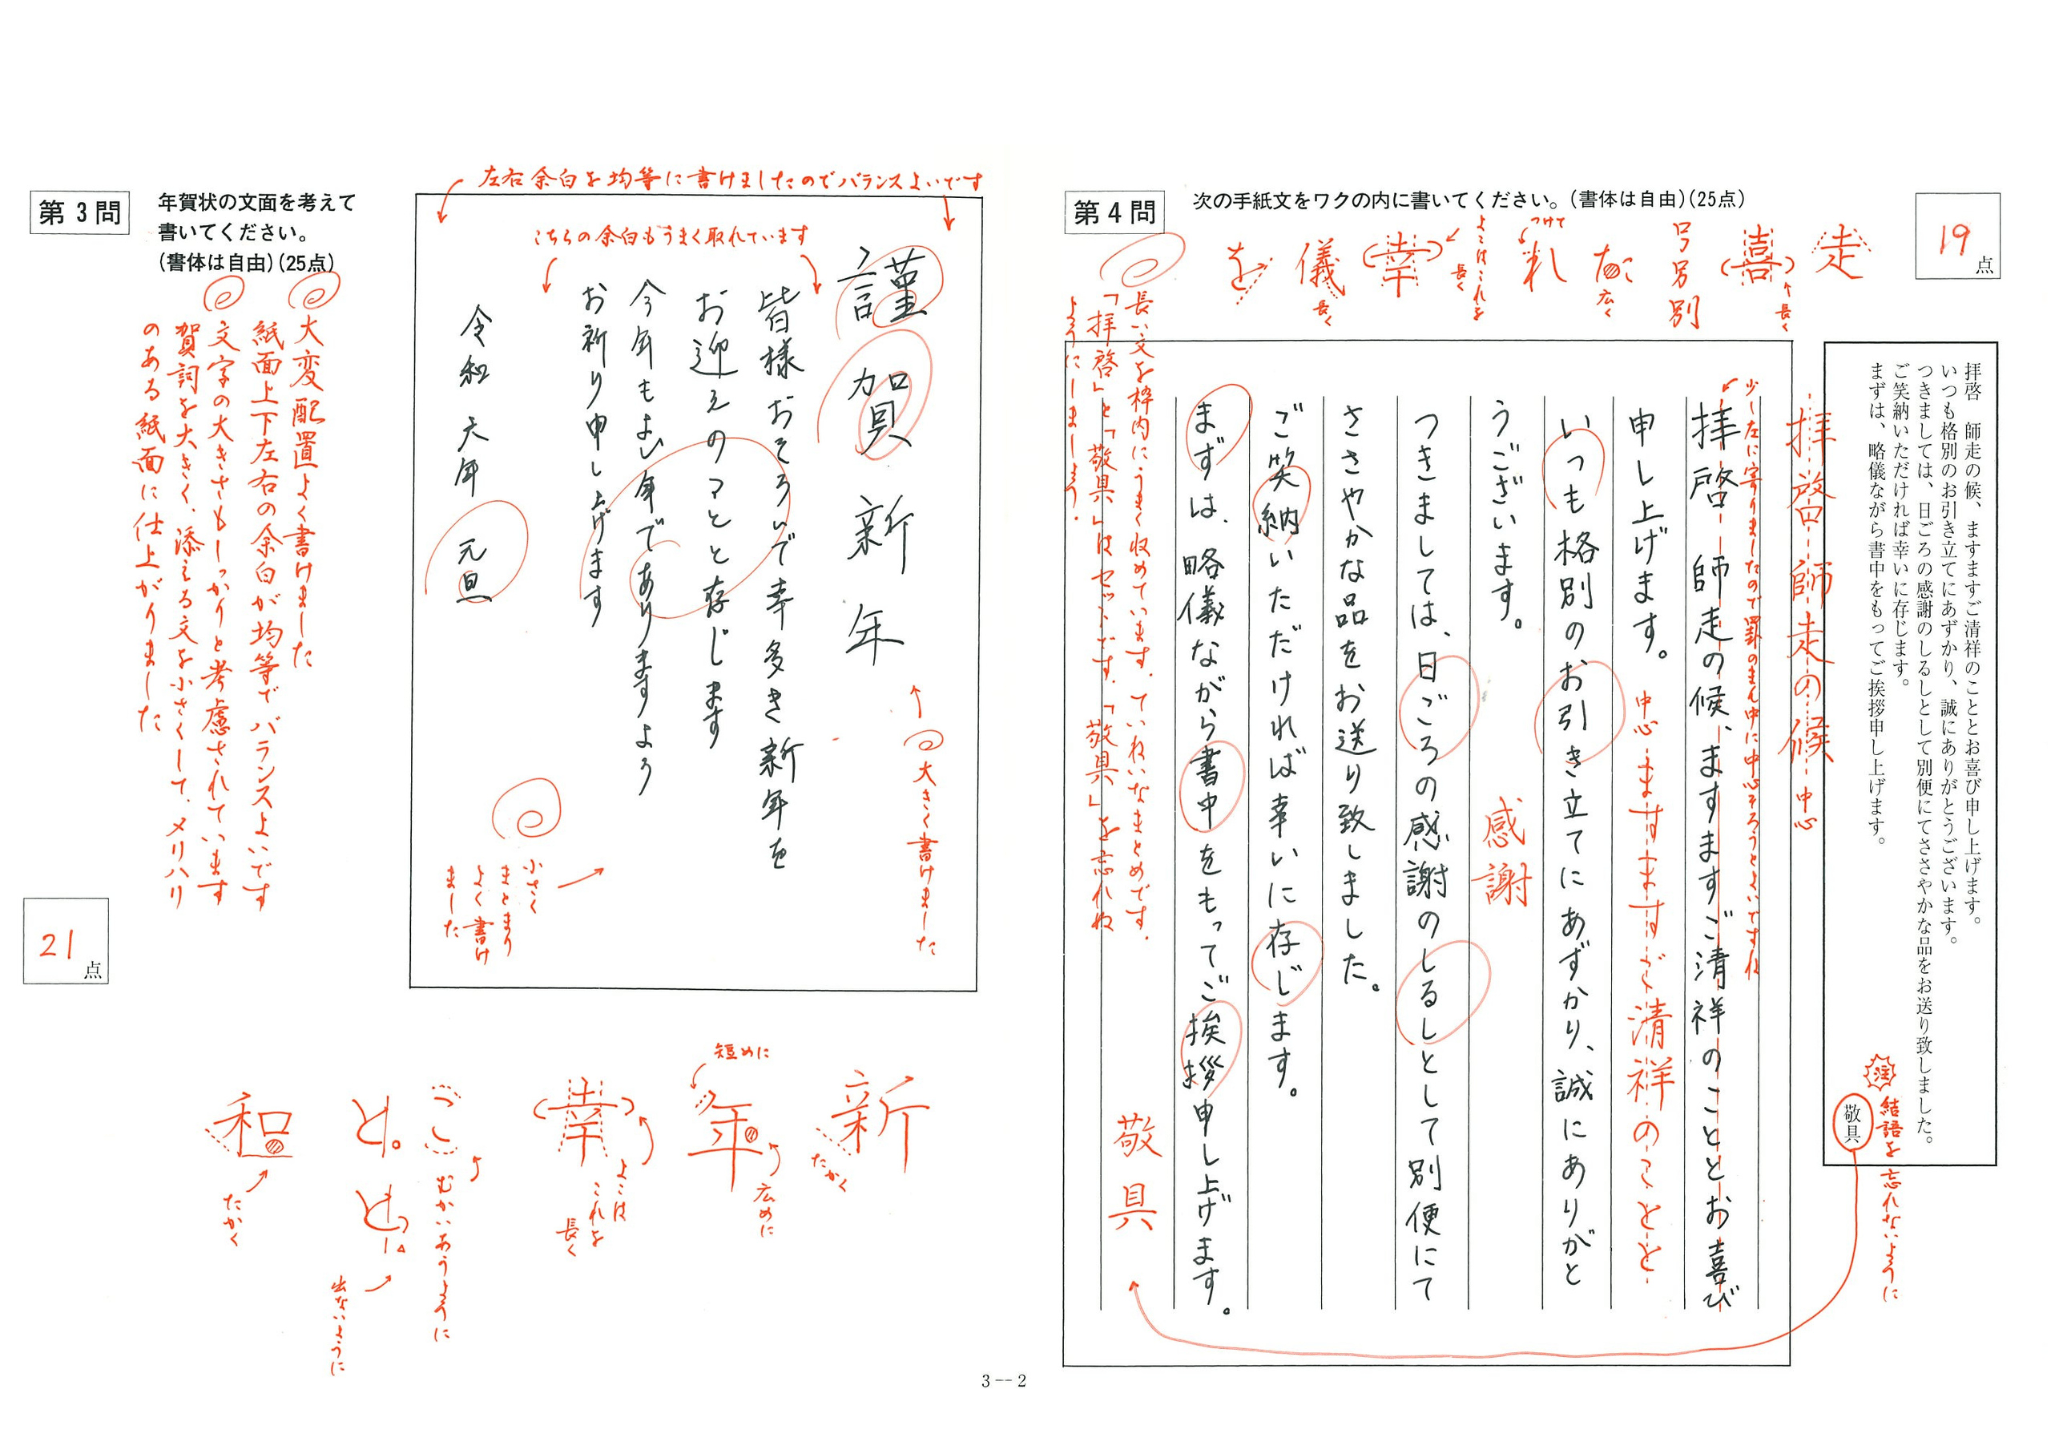 第4問
次の手紙文をワクの内に書いてください。(書体は自由)(25点)
19点
走
喜
長く
号別
広く
礼
つけて
よこはこれを
長く
幸
儀
長く
を
拝啓　師走の候、ますますご清祥のこととお喜び申し上げます。
いつも格別のお引き立てにあずかり、誠にありがとうございます。
つきましては、日ごろの感謝のしるしとして別便にてささやかな品をお送り致しました。
ご笑納いただければ幸いに存じます。
まずは、略儀ながら書中をもってご挨拶申し上げます。
敬具
注
結語を忘れないように
拝啓師走の候
中心
少し左に寄りましたので罫のまん中に中心そろうとよいですね
拝啓　師走の候、ますますご清祥のこととお喜び
申し上げます。
中心
ますますご清祥のことと
いつも格別のお引き立てにあずかり、誠にありがと
うございます。
感謝
つきましては、日ごろの感謝のしるしとして別便にて
ささやかな品をお送り致しました。
ご笑納いただければ幸いに存じます。
まずは、略儀ながら書中をもってご挨拶申し上げます。
敬具
長い文を枠内にうまく収めています。ていねいなまとめです。
「拝啓」と「敬具」はセットです。「敬具」を忘れぬ
ようにしましょう。
第3問
年賀状の文面を考えて
書いてください。
(書体は自由)(25点)
左右余白を均等に書けましたのでバランスよいです
こちらの余白もうまく取れています
謹賀新年
皆様おそろいで幸多き新年を
お迎えのことと存じます
今年もよい年でありますよう
お祈り申し上げます
令和大年　元旦
大きく書けました
小さく
まとまり
よく書け
ました
大変配置よく書けました
紙面上下左右の余白が均等でバランスよいです
文字の大きさもしっかりと考慮されています
賀詞を大きく、添える文を小さくして、メリハリ
のある紙面に仕上がりました
21点
新
たかく
年
短めに
広めに
幸
よこは
これを
長く
こ
むかいあうように
と
と
出ないように
和
たかく
3-2